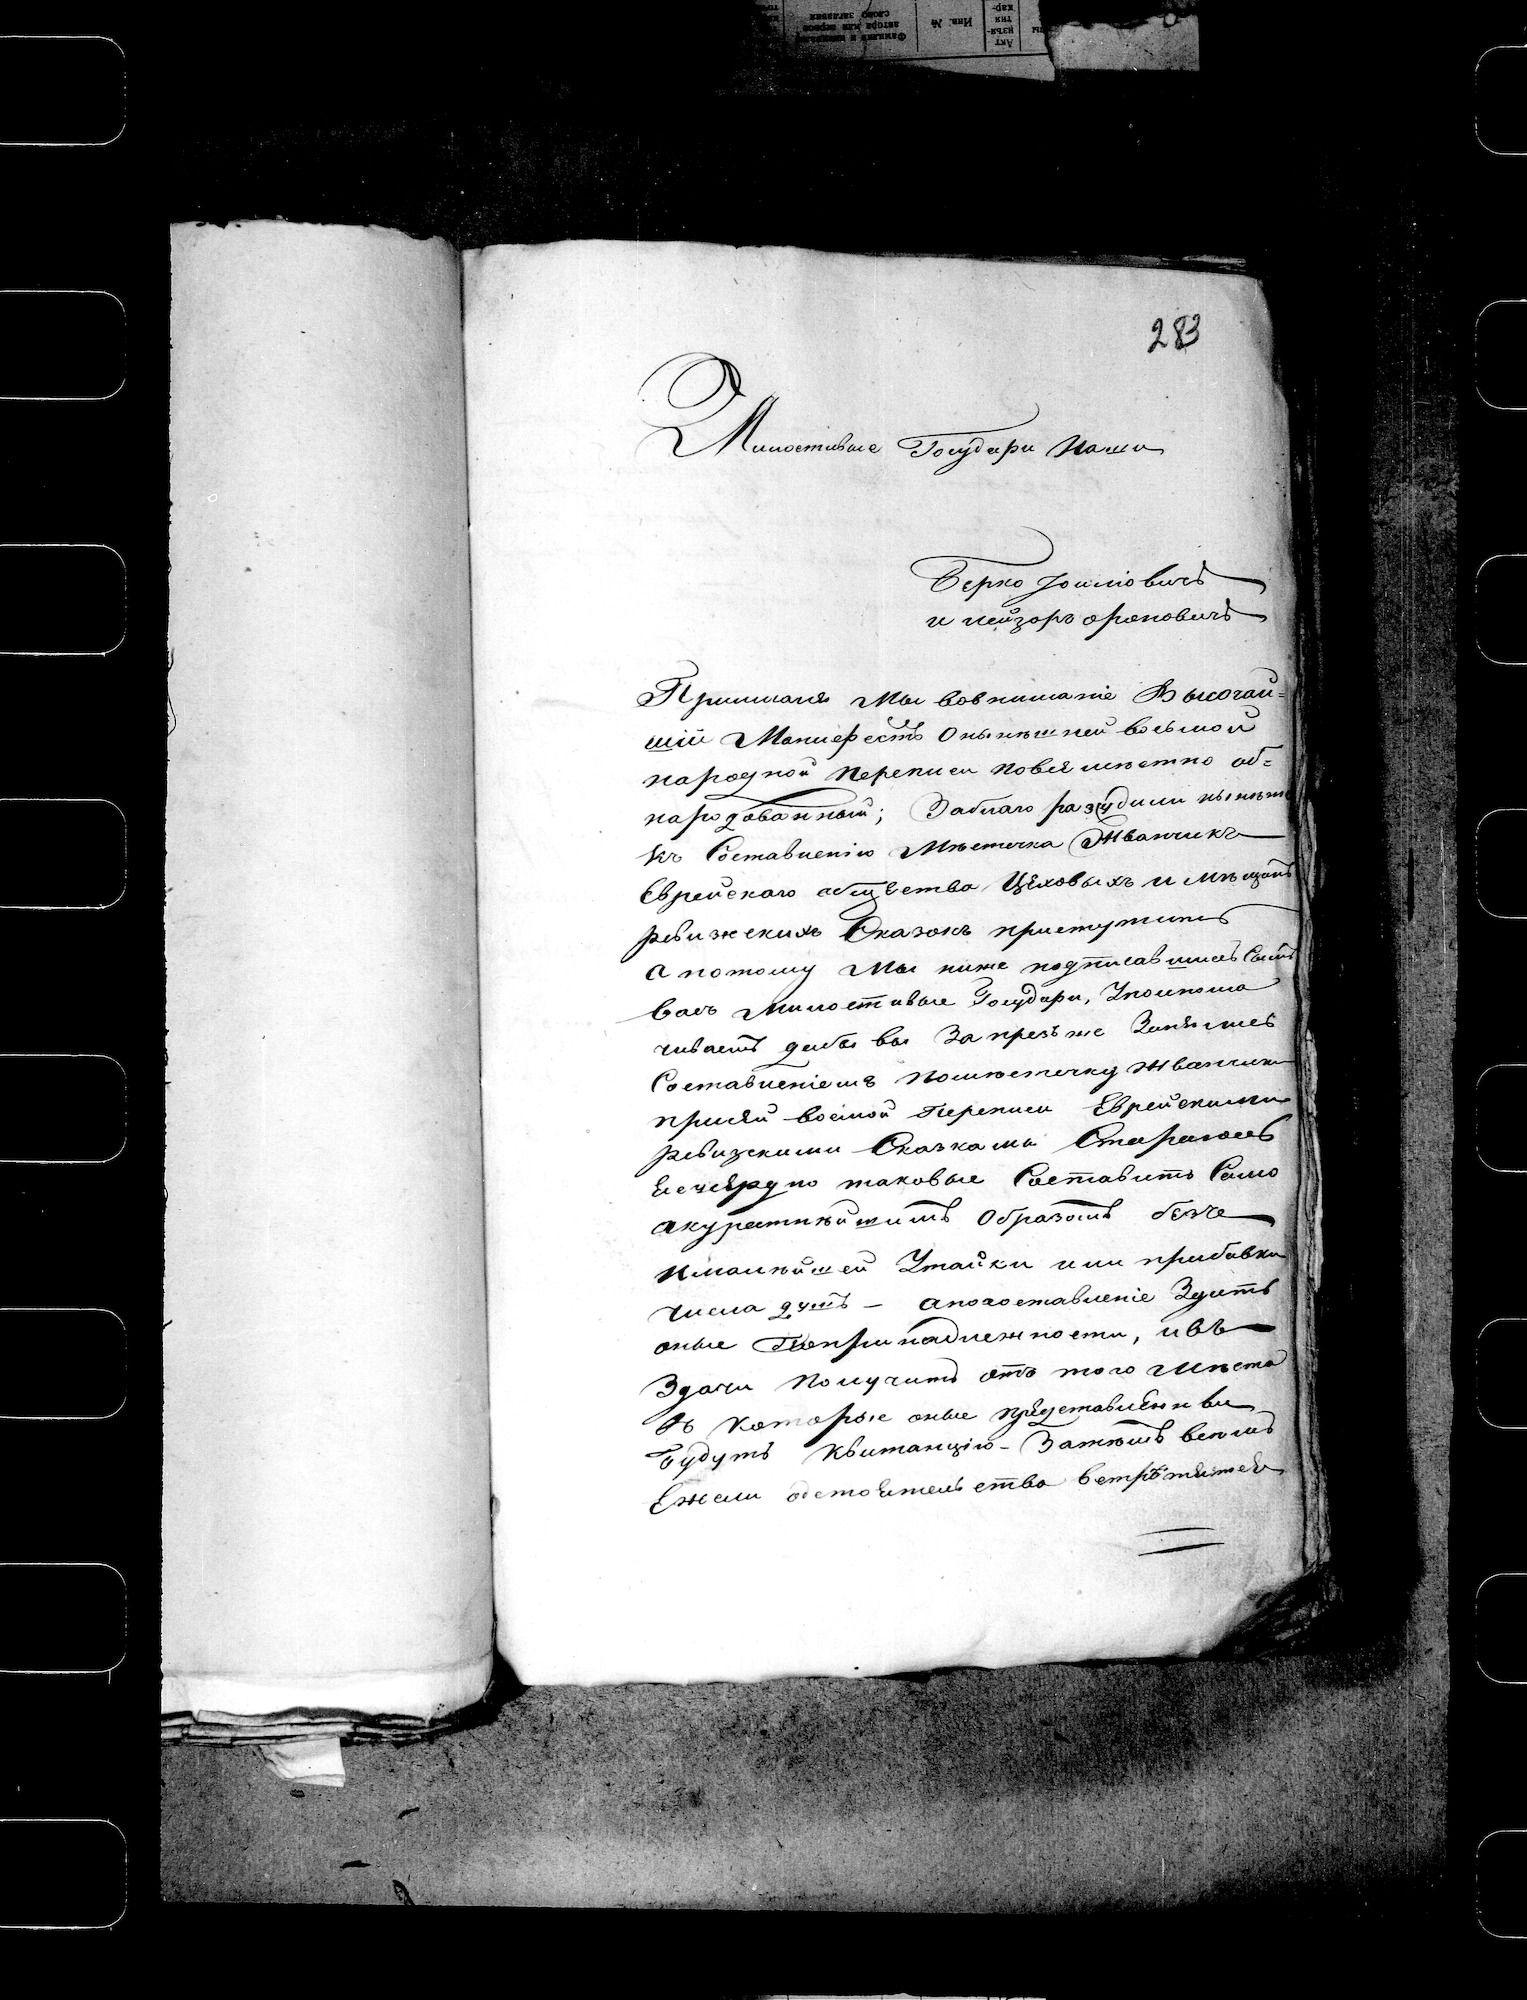 283
Милостивые Государи Наши
Берко Іоиловичъ
и лейзоръ ароновичъ
Принимая Мы вовниманіе Высочай=
шій Манифестъ Онынѣшней восьмой
народной переписи повсямѣстно об=
народованный; Заблаго разсудили нынѣже
къ Составленію Мѣстечка Жванчика
Еврейскаго общества Цеховыхъ и мѣщанъ
ревизскихъ Сказокъ приступить
а потому Мы ниже подписавшіесь Симъ
васъ милостивые Государи, Уполнома
чиваемъ дабы вы
Составленіемъ помѣстечку Жванчику
присей восмой Переписи Еврейскими
ревизскими Сказками Стараясь
таковые Составить Само
акуратнѣйшимъ Образомъ безъ
Ималѣйшей Утайки или прибавки
числа душъ – апосоставленіе Здать
оные Попринадлежности, ивъ
Здачи Получить отъ того мѣста
Въ которые оные представленны
будутъ Квитанцію – Затѣмъ
Ежели обстоятельства встрѣтятся